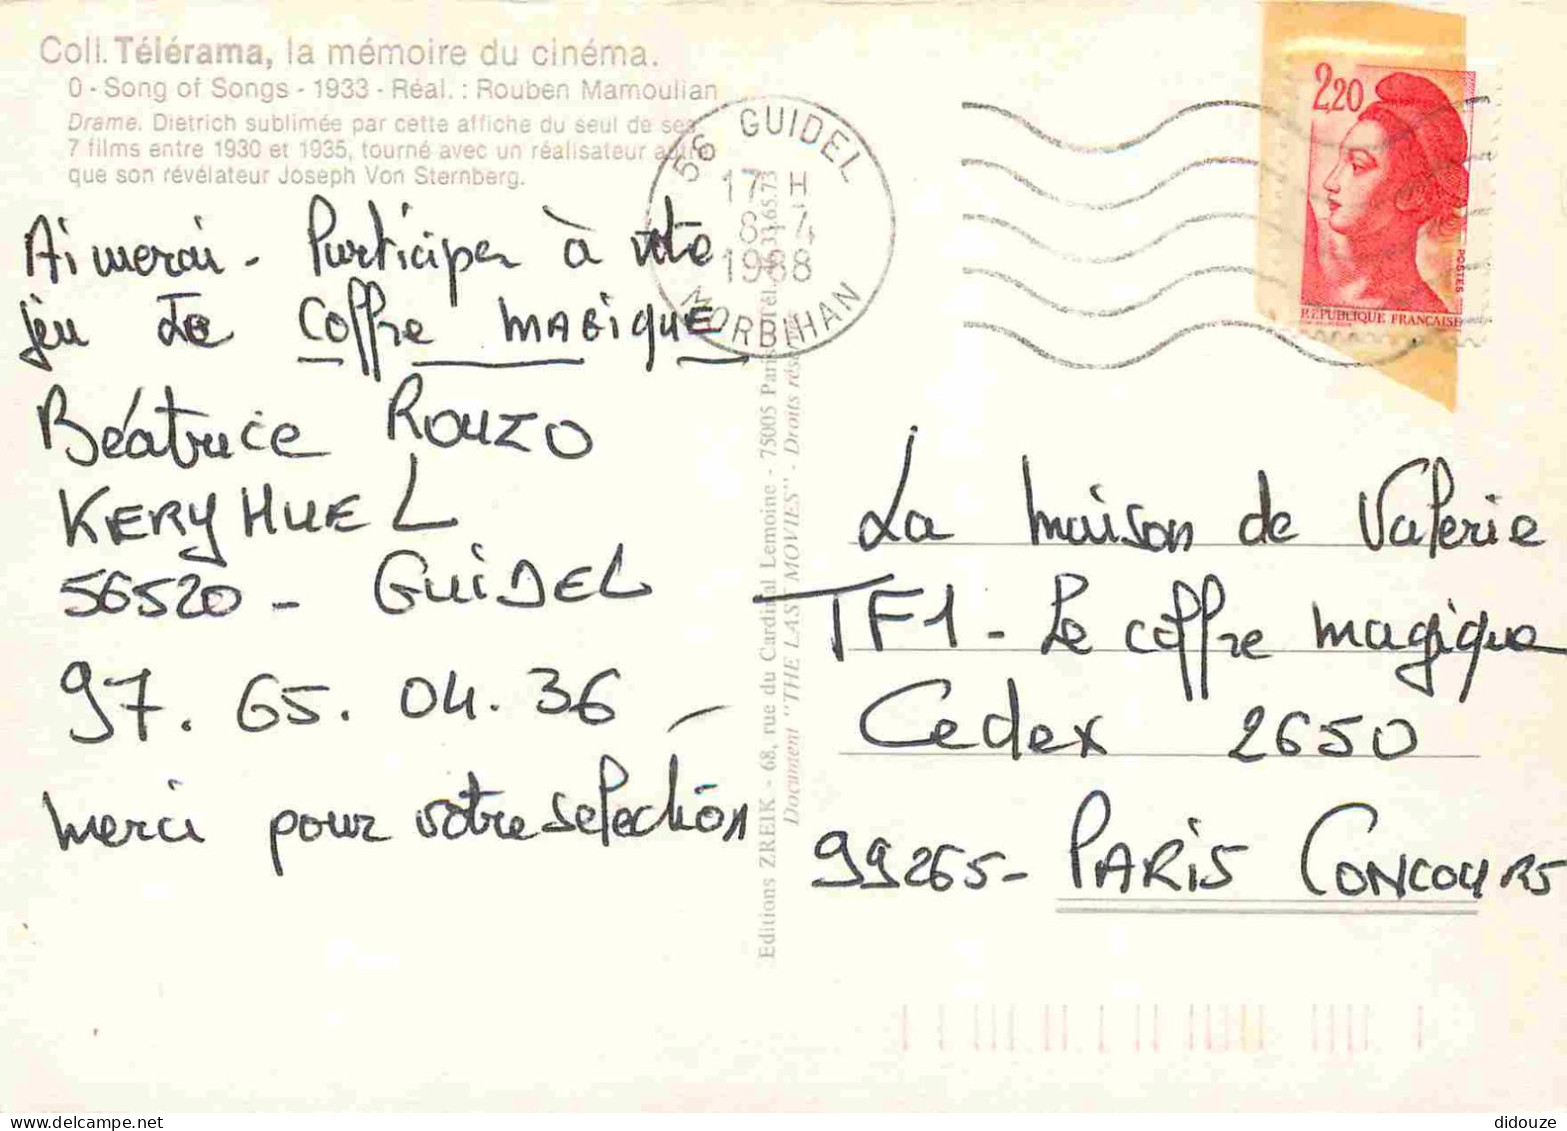 Coll. Télérama, la mémoire du cinéma.
0 - Song of Songs - 1933 - Réal. : Rouben Mamoulian
Drame. Dietrich sublimée par cette affiche du seul de ses
7 films entre 1930 et 1935, tourné avec un réalisateur autre
que son révélateur Joseph Von Sternberg.
56 GUIDEL
17 H
8-4
1988
MORBIHAN
2,20
POSTES
REPUBLIQUE FRANÇAISE
Aimerai - Participer à votre
jeu Le coffre MAGIQUE
Béatrice ROUZO
KERYHUEL
56520 - GUIDEL
97. 65. 04. 36 -
Merci pour votre selection
Editions ZREIK - 68, rue du Cardinal Lemoine - 75005 Paris Tél. 43.65.73
Document "THE LAST MOVIES" - Droits
La maison de Valerie
TF1 - Le coffre magique
Cedex 2650
99265 - PARIS CONCOURS
didouze